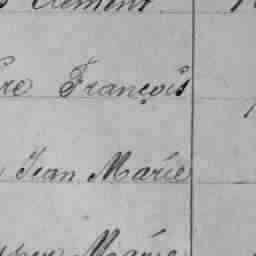 Clément
re François
Jean Marie
Marie